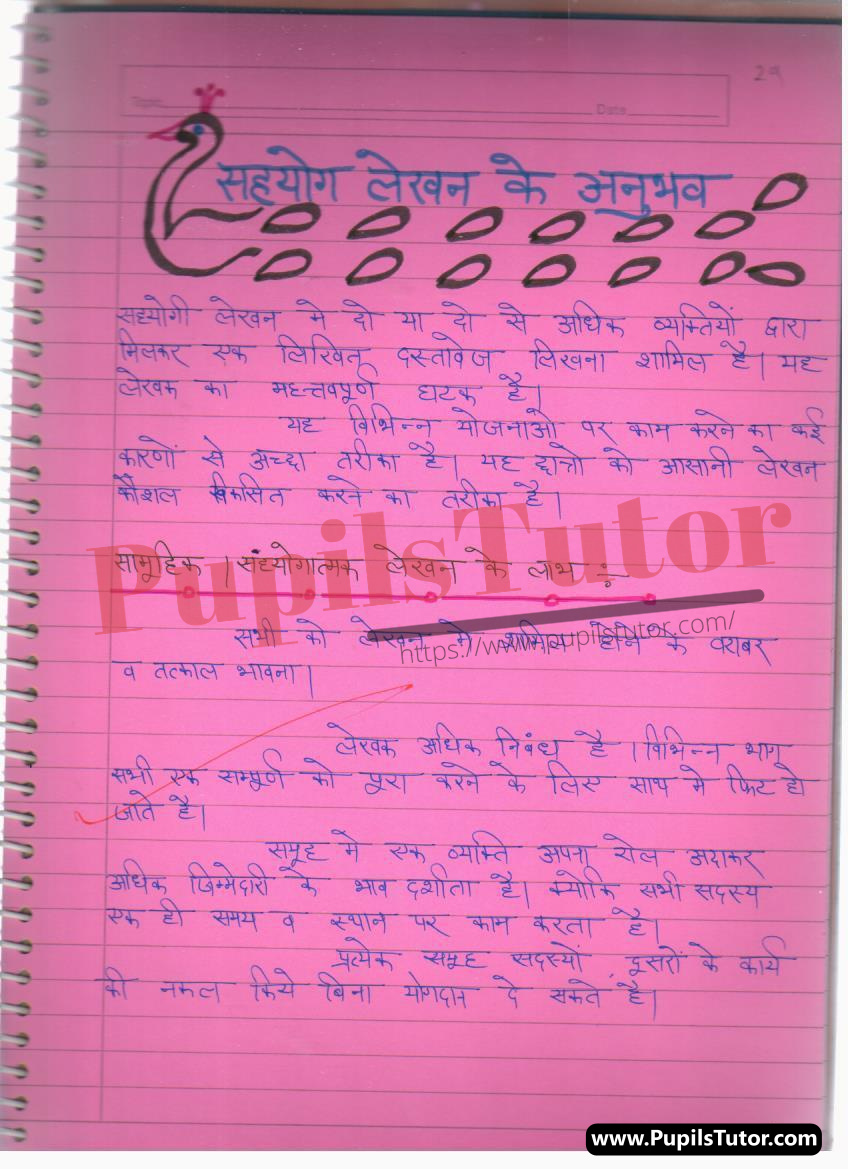 29
Topic
Date
सहयोग लेखन के अनुभव
सहयोगी लेखन मे दो या दो से अधिक व्यक्तियों द्वारा
मिलकर एक लिखित दस्तावेज लिखना शामिल है। यह
लेखक का महत्त्वपूर्ण घटक है।
यह विभिन्न योजनाओ पर काम करने का कई
कारणों से अच्छा तरीका है। यह छात्तो को आसानी लेखन
कौशल विकसित करने का तरीका है।
PupilsTutor
सामूहिक / संहयोगात्मक लेखन के लाभ ÷
सभी को लेखन मे शामिल होने के वराबर
https://www.pupilstutor.com/
व तत्काल भावना।
लेखक अधिक निबंध है । विभिन्न भाग
सभी एक सम्पूर्ण को पूरा करने के लिए साथ मे फिट हो
जाते है।
समूह मे एक व्यक्ति अपना रोल अदाकर
अधिक जिम्मेदारी के भाव दर्शाता है। क्योकि सभी सदस्य
एक ही समय व स्थान पर काम करता है।
प्रत्येक समूह सदस्यों दूसरों के कार्य
की नकल किये बिना योगदान दे सकते है।
www.PupilsTutor.com